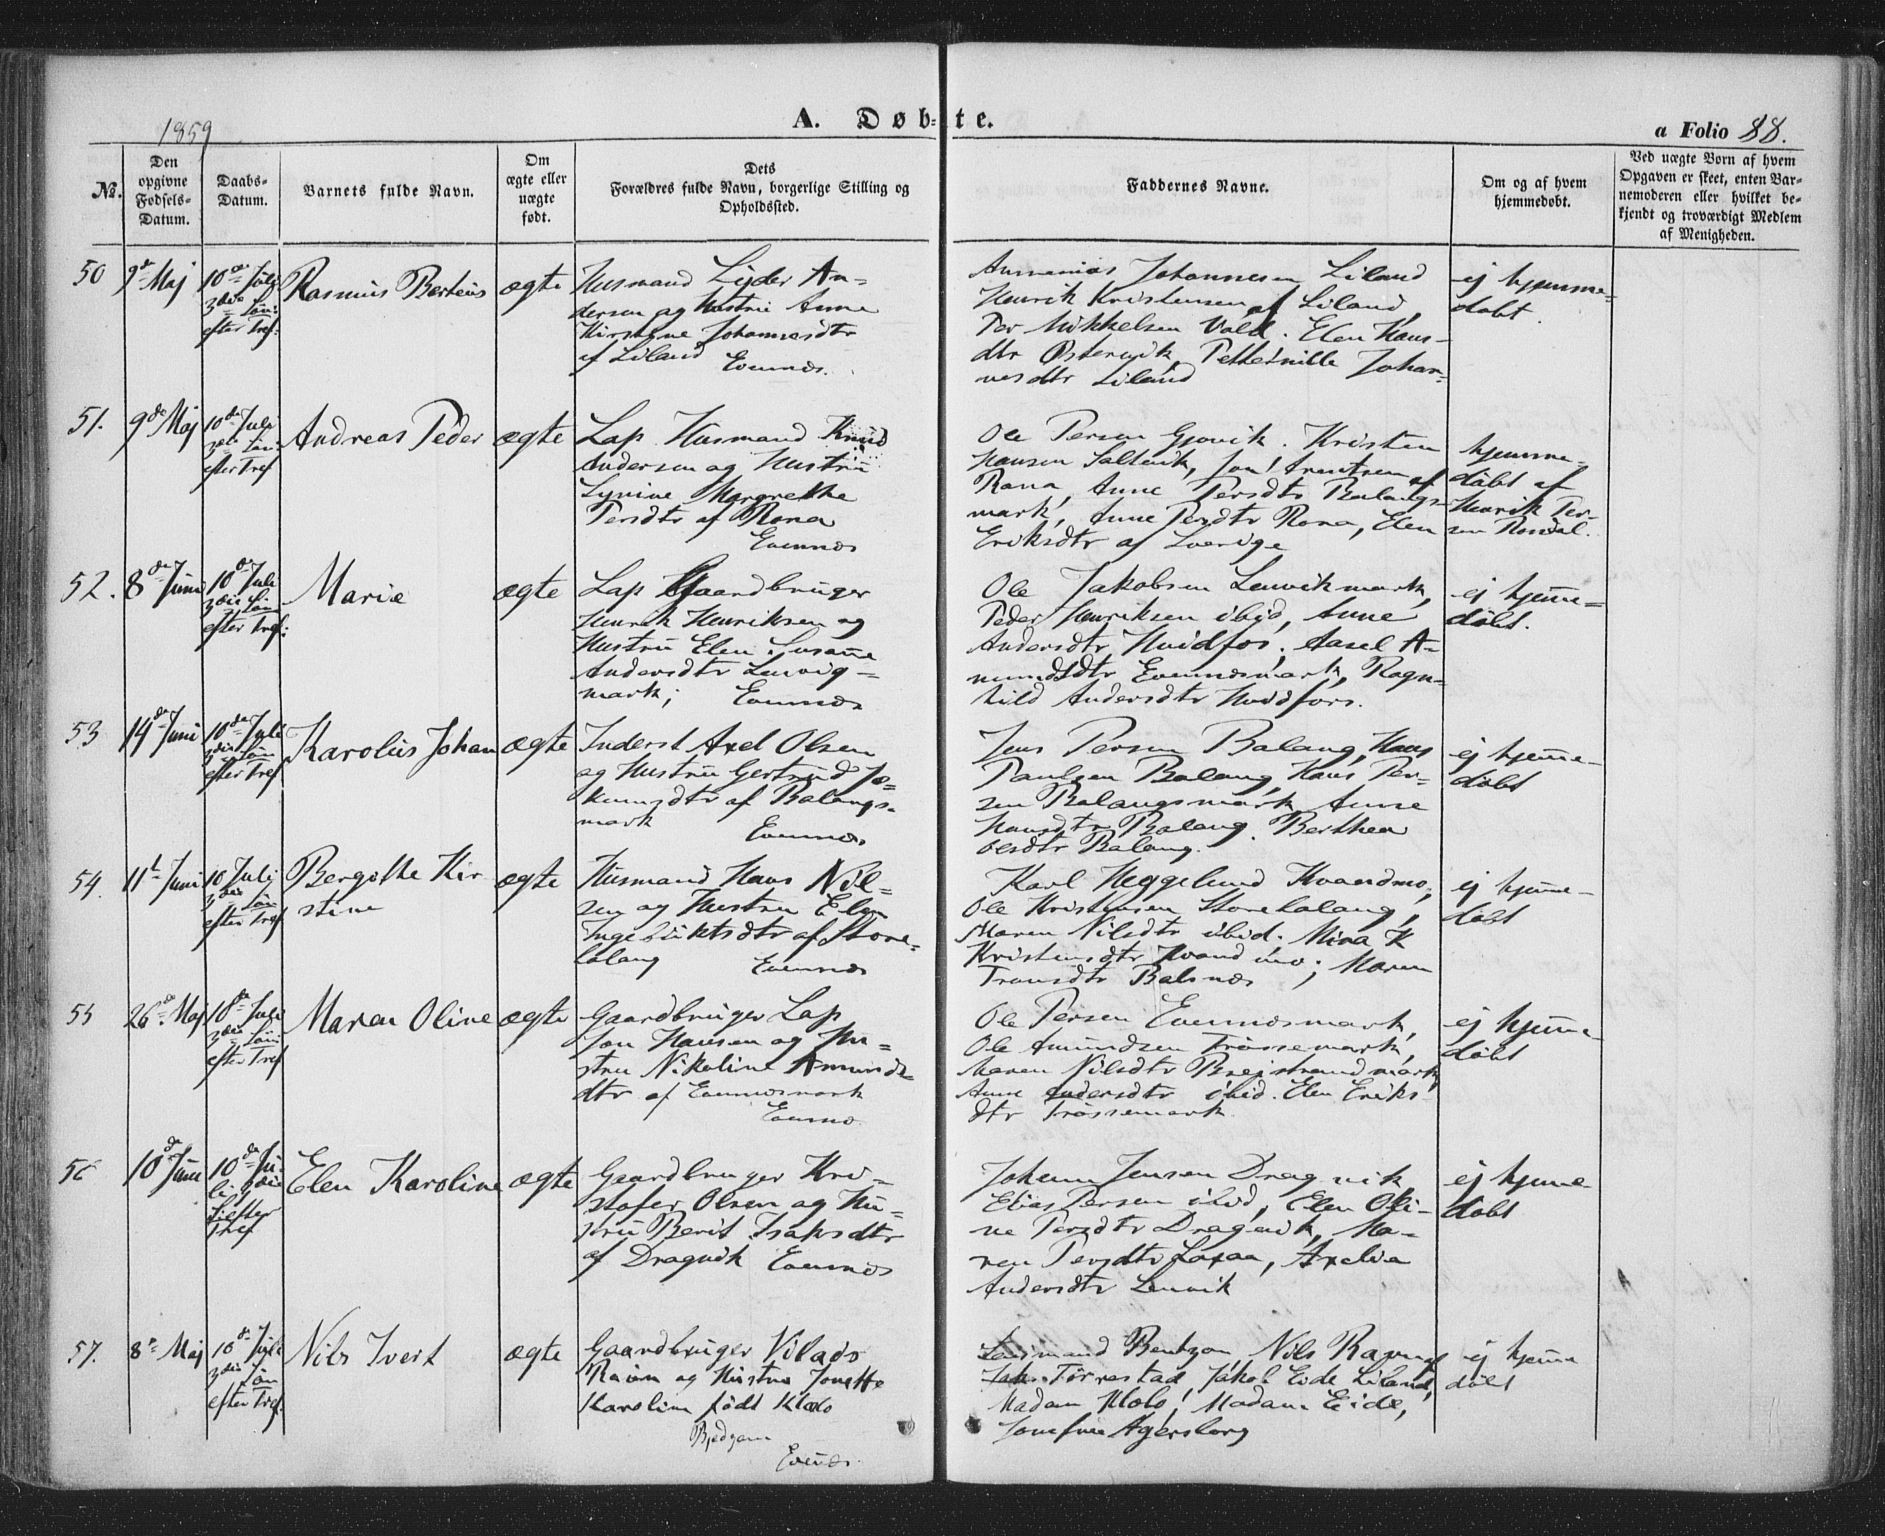 1859
A. Døbte.
a Folio 88.
No.
Den opgivne Fødsels-Datum.
Daabs-Datum.
Barnets fulde Navn.
Om ægte eller uægte født.
Dets Forældres fulde Navn, borgerlige Stilling og Opholdssted.
Faddernes Navne.
Om og af hvem hjemmedøbt.
Ved uægte Børn af hvem Opgaven er skeet, enten Barnemoderen eller hvilket bekjendt og troværdigt Medlem af Menigheden.
50 9de Maj 10de Juli 3die Søn. efter Tref. Rasmus Berteus ægte
Husmand Lyder An-
dersen og Hustru Anne
Kirstine Johannesdtr
af Liland Evennes.
Johannesen Liland
Henrik Kristensen af Liland,
Per Mikkelsen Vold. Elen Hans-
dtr Østervik, Petternille Johan-
nesdtr Liland
ej hjemme-
døbt.
51. 9de Maj 10de Juli 3die Søn. efter Tref Andreas Peder ægte
Lap Husmand Knud
Andersen og Hustru
Margrethe
Persdtr af Rona
Evennes
Ole Persen Gjovik. Kristen
Hansen Saltvik, Jon Arentsen af
Rana, Anne Persdtr Balangs-
mark, Anne Persdtr Rona, Elen
Eriksdtr af Sverige
hjemme-
døbt af
Henrik Per-
sen
52. 8de Juni 10de Juli 3die Søn. efter Tref: Marie ægte
Lap Gaardbruger
Henrik Henriksen og
Hustru Elen Susanne
Andersdtr Lenvig-
mark; Evennes
Ole Jakobsen Lenvikmark,
Peder Henriksen ibid, Anne
Andersdtr Hvidfos, Aasel A-
mundsdtr Evennesmark, Ragn-
hild Andersdtr Hvidfors.
ej hjemme-
døbt.
53 14de Juni 10de Juli 3die Søn efter Tref Karolus Johan ægte
Inderst Axel Olsen
og Hustru Gertrud Jo-
kumsdtr af Balangs-
mark Evennes.
Jens Persen Balang, Hans
Paulsen Balang, Hans Per-
sen Balangsmark, Anne
Hansdtr Balang. Berthea
Balang.
ej hjemme-
døbt
54. 11te Juni 10 Juli 3die Søn efter Tref Bergitte Kir-
stine ægte
Husmand Hans Nil-
sen og Hustru Elen
Ingebriktsdtr af Store-
balang Evennes
Karl Heggelund Kvandmo,
Ole Kristensen Storebalang,
Maren Nilsdtr ibid. Mina K
Kristensdtr Kvandmo; Maren
Transdtr Balsnes
ej hjemme-
døbt
55 26de Maj 10de Juli 3die Søn efter Tref Maren Oline ægte
Gaardbruger Lap
Jon Hansen og Hu-
stru Nikoline Amunds-
dtr af Evennesmark
Evennes
Ole Persen Evennesmark,
Ole Amundsen Trøssemark,
Maren Nilsdtr Breistrandmark,
Anne Andersdtr ibid. Elen Eriks
dtr Trøssemark.
ej hjemme-
døbt
56 10de Juni 10de Ju-
li 3die S. efter Tref Elen Karoline ægte
Gaardbruger Kri-
stofer Olsen og Hu-
stru Berit Isaksdtr
af Dragvik Evennes
Johan Jensen Dragvik
Elias Persen ibid, Elen Oli-
ne Persdtr Dragvik, Ma-
ren Persdtr Laxaa, Axelia
Andersdtr Lenvik
ej hjemme-
døbt
57. 8de Maj 10de Juli 3die Søn efter Tref. Nils Ivert ægte
Gaardbruger Vilads
Ravn og Hustru Jonette
Karoline født Klæbo
Evenes.
Bentzon Nils Ravn af
Jak. Førrestad Jakob Eide Liland,
Madam Klæbo, Madam Eide,
Josefine Agersborg
ej hjemme
døbt